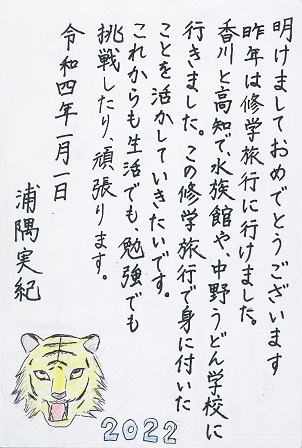 明けましておめでとうございます
昨年は修学旅行に行けました。
香川と高知で、水族館や、中野うどん学校に
行きました。この修学旅行で身に付いた
ことを活かしていきたいです。
これからも生活でも、勉強でも
挑戦したり、頑張ります。
令和四年一月一日
浦隅実紀
2022